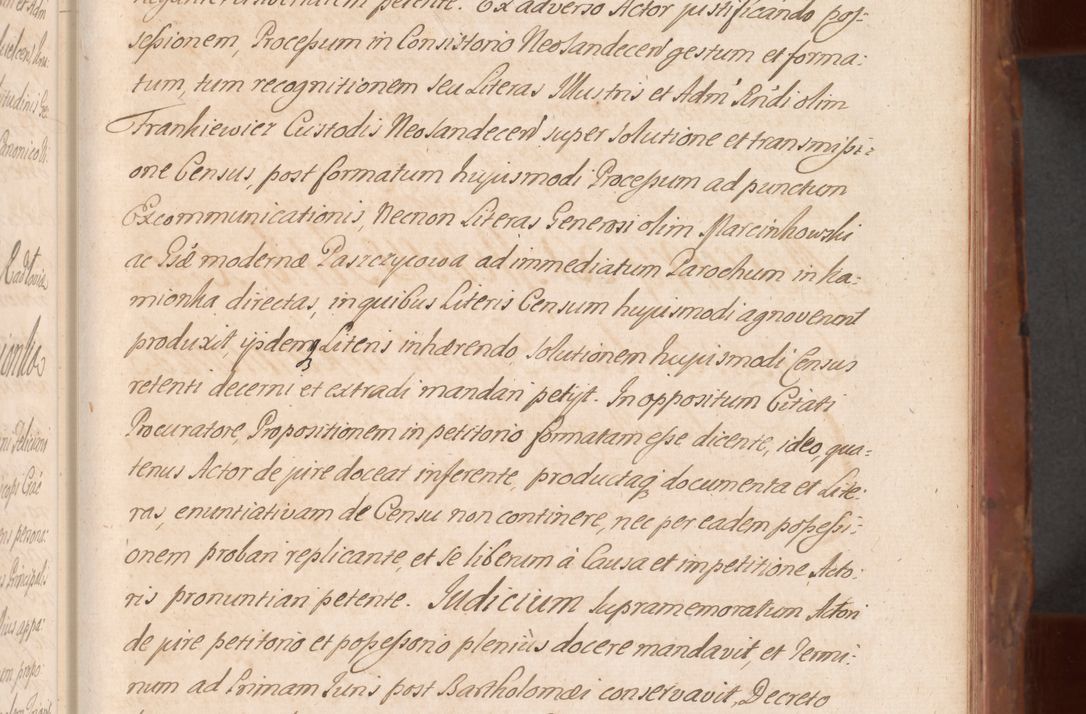 petente. Ex adverso Actor justificando pos-
sessionem, Processum in Consistorio Neosandecen gestum et forma-
tum, tum recognitionem seu Literas Illustris et Adm Rndi olim
Frankiewicz Custodis Neosandecen super solutione et transmissi-
one Census, post formatum hujusmodi Processum ad punctum
Excommunicationis, Necnon Literas Generosi olim Marcinkowski
ac Gsae modernae Paszczycowa ad immediatum Parochum in Ka-
mionka directas, in quibus Literis Censum hujusmodi agnoverunt
produxit, ijsdemq Literis inhaerendo, solutionem hujusmodi Census
retenti decerni et extradi mandari petijt. In oppositum Citati
Procuratore, Propositionem in petitorio formatam esse dicente, ideo, qua-
tenus Actor de jure doceat inferente, productaq documenta et Lite-
ras, enuntiativam de Censu non continere, nec per eadem possessi-
onem probari replicante, et se liberum à Causa et impetitione Acto-
ris pronuntiari petente. Judicium supramemoratum Actori
de jure petitorio et possessorio plenius docere mandavit, et Termi-
num ad Primam Juris post Bartholomaei conservavit, Decreto